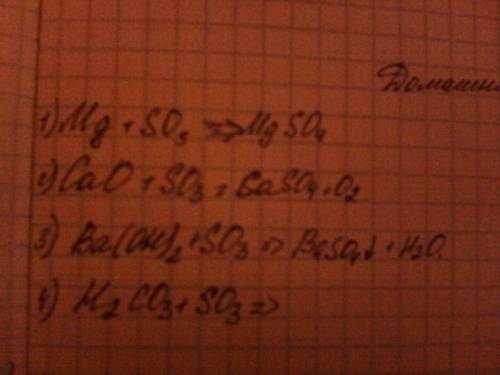 Домашн
1) Mg + SO₃ => MgSO₄
2) CaO + SO₃ = CaSO₄ + O₂
3) Ba(OH)₂ + SO₃ => BaSO₄↓ + H₂O
4) H₂CO₃ + SO₃ =>